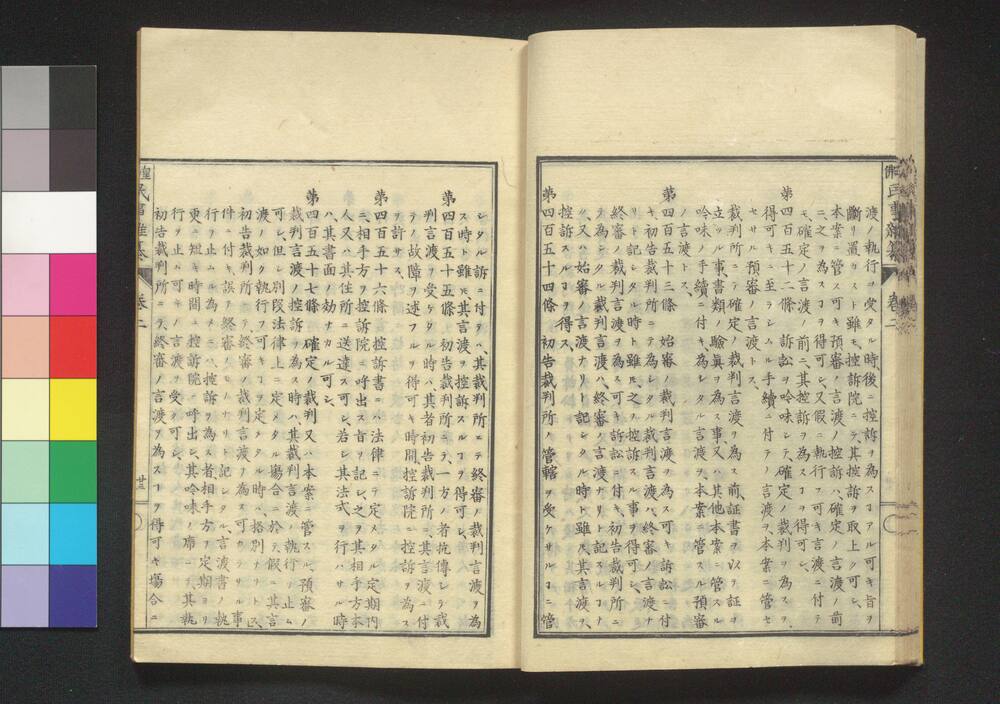 渡ノ執行ヲ受クル時後ニ控訴ヲ為スコアル可キ旨ヲ
斷リ置カスト雖モ控訴院ニテ其控訴ヲ取上ク可シ
本案ニ管ス可キ預審ノ言渡ノ控訴ハ確定ノ言渡ノ前
ニ之ヲ為スコヲ得可シ又假ニ執行ス可キ言渡ニ付テ
モ確定ノ言渡ノ前ニ其控訴ヲ為スコヲ得可シ
第四百五十二條 訴訟ヲ吟味シテ確定ノ裁判ヲ為スヲ
得可キニ至ラシムル手續ニ付テノ言渡ヲ本案ニ管セ
サル預審ノ言渡トス
裁判所ニテ確定ノ裁判言渡ヲ為ス前証書ヲ以テ証ヲ
立ツル事書類ノ驗眞ヲ為ス事又ハ其他本案ニ管スル
吟味ノ手續ニ付キ為シタル言渡ヲ本案ニ管スル預審
ノ言渡トス
第四百五十三條 始審ノ裁判言渡ヲ為ス可キ訴訟ニ付
キ初告裁判所ニテ為シタル裁判言渡ハ終審ノ言渡ナ
リト記シタル時ト雖モ之ヲ控訴スル事ヲ得可シ
終審ノ裁判言渡ヲ為ス可キ訴訟ニ付キ初告裁判所ニ
テ為シタル裁判言渡ハ終審ノ言渡ナリト記スルコナ
ク又ハ始審ノ言渡ナリト記シタル時ト雖モ其言渡ヲ
控訴スルコヲ得ス
第四百五十四條 初告裁判所ノ管轄ヲ受ケサルコニ管
シタル訴ニ付テハ其裁判所ニテ終審ノ裁判言渡ヲ為
ス時ト雖モ其言渡ヲ控訴スルコヲ得可シ
第四百五十五條 初告裁判所ニテ一方ノ者抗傳シテ裁
判言渡ヲ受ケタル時ハ其者初告裁判所ニ其言渡ニ付
テノ故障ヲ述フルヲ得可キ時間控訴院ニ控訴ヲ為ス
ヲ許サス
第四百五十六條 控訴書ニハ法律ニテ定メタル定期内
ニ相手方ヲ控訴院ニ呼出ス旨ヲ記シ之ヲ其相手方本
人又ハ其住所ニ送達ス可シ若シ其法式ヲ行ハサル時
ハ其書面ノ効ナカル可シ
第四百五十七條 確定ノ裁判又ハ本案ニ管スル預審ノ
裁判言渡ノ控訴ヲ為ス時ハ其裁判言渡ノ執行ヲ止ム
可シ但シ別段法律上ニ定メタル場合ニ於テ假ニ其言
渡ノ如ク執行フ可キコヲ定メタル時ハ格別ナリトス
初告裁判所ニテ終審ノ裁判言渡ヲ為ス可カラサル事
件ニ付キ誤テ終審ノ言渡ナリト記シタル言渡書ノ執
行ヲ止ムル為メニハ控訴ヲ為ス者相手方ヲ定期ヨリ
更ニ短キ時間ニ控訴院ニ呼出シ其吟味ノ席ニテ其執
行ヲ止ム可キノ言渡ヲ受ク可シ
初告裁判所ニテ終審ノ言渡ヲ為スコヲ得可キ場合ニ
卷二
廿三